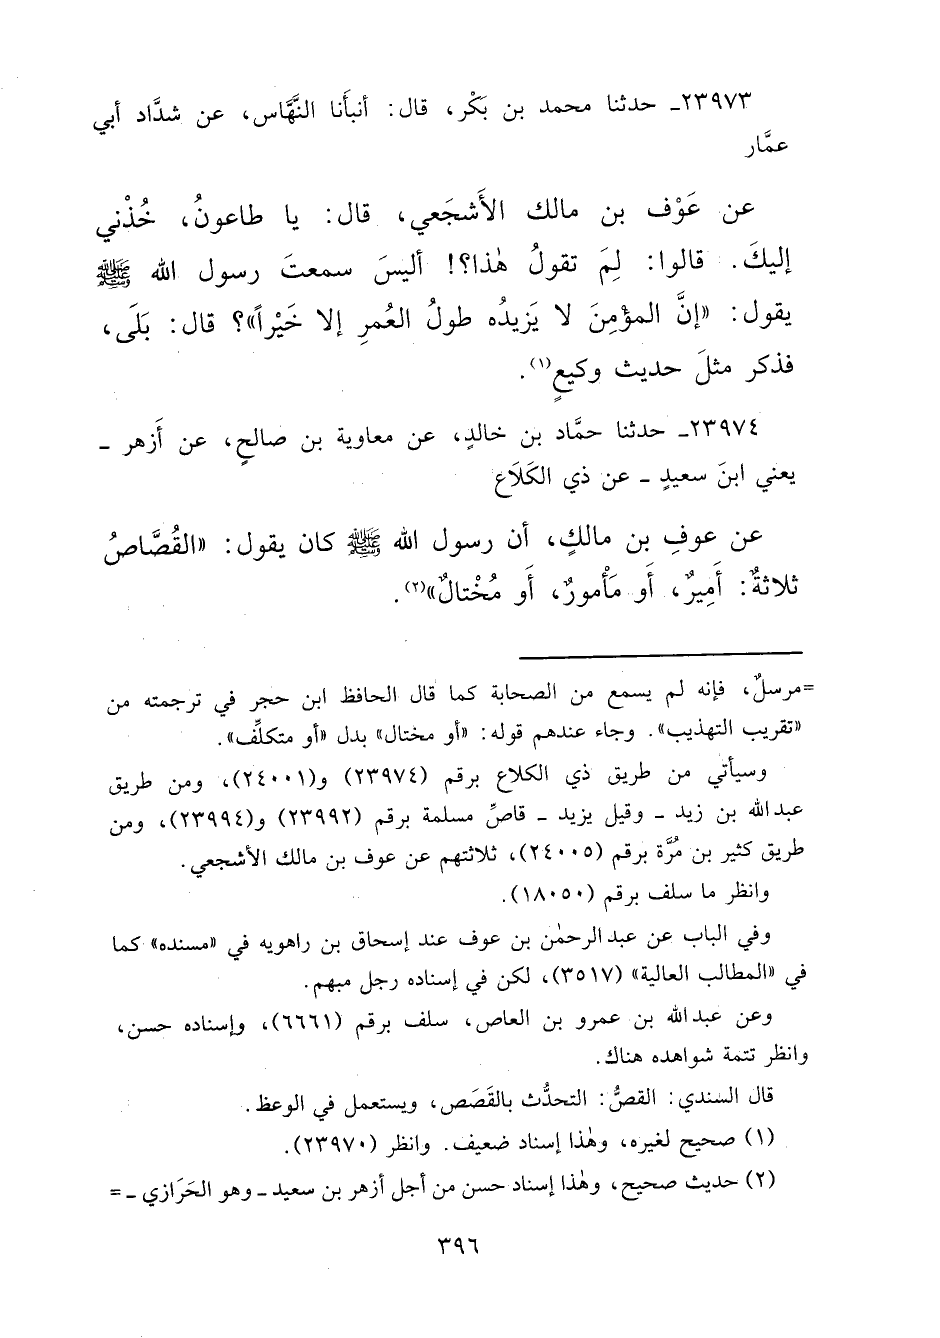 ٢٣٩٧٣ـ حدثنا محمد بن بَكْر، قال: أنبأَنا النَّهَّاس، عن شدَّاد أبي
عمَّار
عن عَوْف بن مالك الأَشجَعي، قال: يا طاعونُ، خُذْني
إليكَ. قالوا: لِمَ تقولُ هٰذا؟! أليسَ سمعتَ رسول الله ﷺ
يقول: «إنَّ المؤْمِنَ لا يَزيدُه طولُ العُمرِ إلا خَيْراً»؟ قال: بَلَى،
فذكر مثلَ حديث وكيعٍ(١).
٢٣٩٧٤ـ حدثنا حمَّاد بن خالدٍ، عن معاوية بن صالحٍ، عن أَزهر ـ
يعني ابنَ سعيدٍ ـ عن ذي الكَلَاع
عن عوفِ بن مالكٍ، أن رسول الله ﷺ كان يقول: «القُصَّاصُ
ثلاثةٌ: أَمِيرٌ، أَو مَأْمورٌ، أَو مُخْتالٌ»(٢).
=مرسلٌ، فإنه لم يسمع من الصحابة كما قال الحافظ ابن حجر في ترجمته من
«تقريب التهذيب». وجاء عندهم قوله: «أو مختال» بدل «أو متكلِّف».
وسيأتي من طريق ذي الكلاع برقم (٢٣٩٧٤) و(٢٤٠٠١)، ومن طريق
عبدالله بن زيد ـ وقيل يزيد ـ قاصِّ مسلمة برقم (٢٣٩٩٢) و(٢٣٩٩٤)، ومن
طريق كثير بن مُرَّة برقم (٢٤٠٠٥)، ثلاثتهم عن عوف بن مالك الأشجعي.
وانظر ما سلف برقم (١٨٠٥٠).
وفي الباب عن عبدالرحمٰن بن عوف عند إسحاق بن راهويه في «مسنده» كما
في «المطالب العالية» (٣٥١٧)، لكن في إسناده رجل مبهم.
وعن عبدالله بن عمرو بن العاص، سلف برقم (٦٦٦١)، وإسناده حسن،
وانظر تتمة شواهده هناك.
قال السندي: القصُّ: التحدُّث بالقَصَص، ويستعمل في الوعظ.
(١) صحيح لغيره، وهٰذا إسناد ضعيف. وانظر (٢٣٩٧٠).
(٢) حديث صحيح، وهٰذا إسناد حسن من أجل أزهر بن سعيد ـ وهو الحَرَازي ـ=
٣٩٦